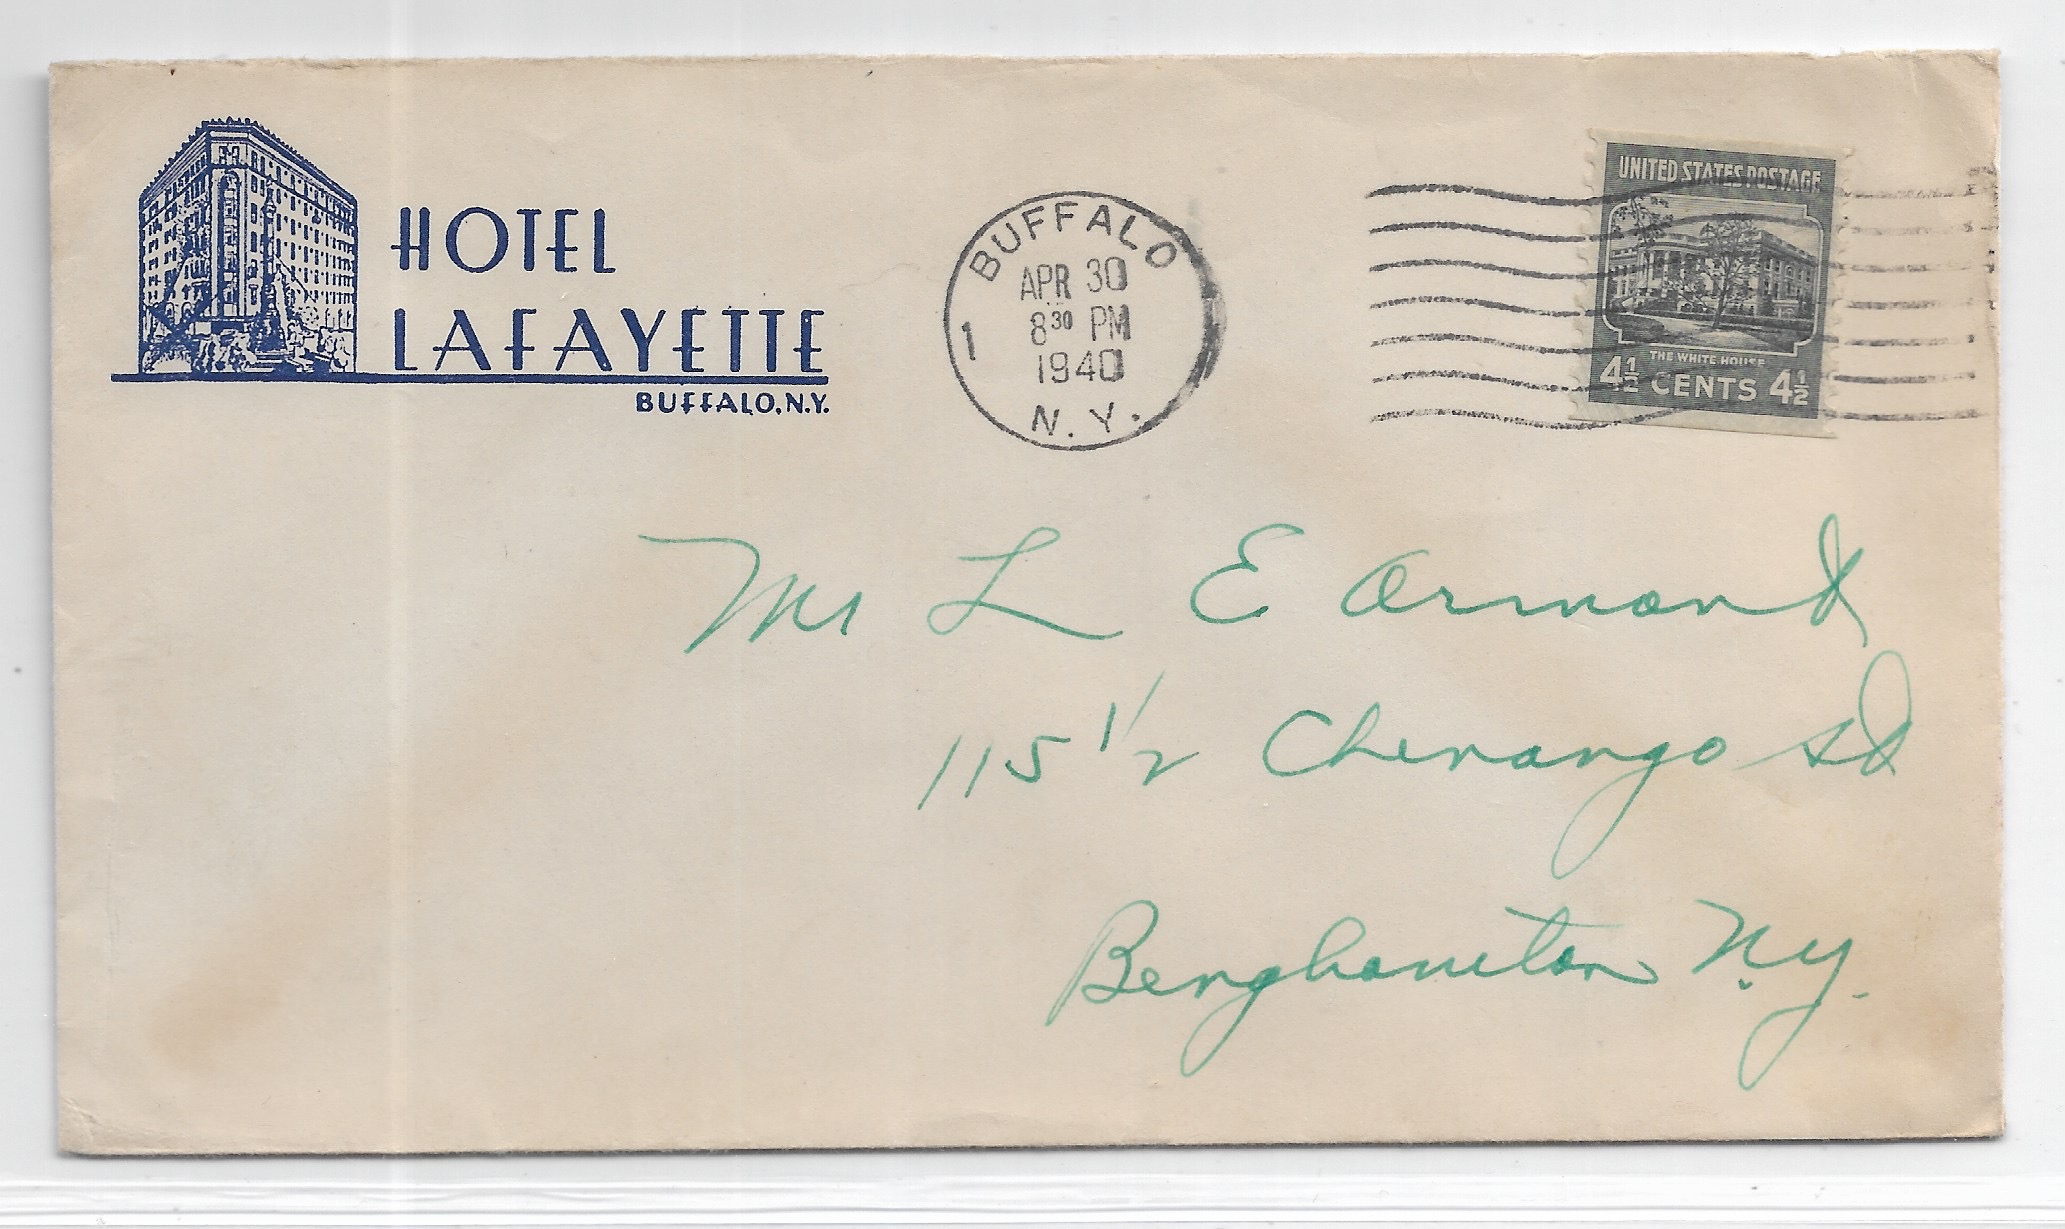 HOTEL
LAFAYETTE
BUFFALO, N.Y.
BUFFALO
APR 30
8 30 PM
1940
1
N. Y.
UNITED STATES POSTAGE
THE WHITE HOUSE
4½ CENTS 4½
Mr L E Ormond
115 1/2 Chenango St
Benghamiton N.Y.